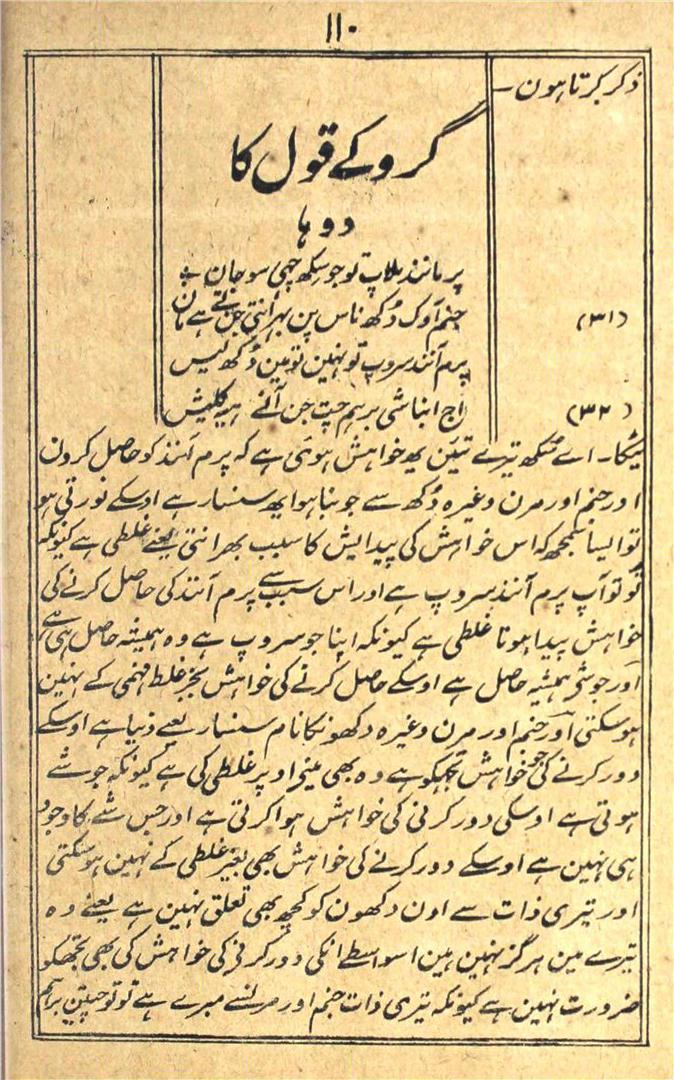 ۱۱۰
ذکر کرتا ہون۔
گرو کے قول کا
دوہا
پرمانند ملاپ تو جو سکھ چہی سو جان
جنم آوک دُکھ ناس پن بہرانتی جن تے ہے مان
(۳۱)
پرم آنند سروپ تو نہین تو مین دُکھ لیس
اج ابناشی برہم چت جن آنے ہیہ کلیش
(۳۲)
ٹیکا۔ اے سُکھ تیرے تئین یہ خواہش ہوئی ہے کہ پرم آنند کو حاصل کرون
اور جنم اور مرن وغیرہ دُکھ سے جو بنا ہوا یہ سنسار ہے اوسکے نورتی ہو
تو ایسا سمجھ کہ اس خواہش کی پیدایش کا سبب بھرانتی یعنے غلطی ہے کیونکہ
تو تو آپ پرم آنند سروپ ہے اور اس سبب سے پرم آنند کی حاصل کرنے کی
خواہش پیدا ہونا غلطی ہے کیونکہ اپنا جو سروپ ہے وہ ہمیشہ حاصل ہی ہے
اور جو شے ہمیشہ حاصل ہے اوسکے حاصل کرنے کی خواہش بجز غلط فہمی کے نہین
ہو سکتی اور جنم اور مرن وغیرہ دکھونکا نام سنسار یعنے دنیا ہے اوسکے
دور کرنے کی جو خواہش تجھکو ہے وہ بھی مبنی اوپر غلطی کی ہے کیونکہ جو شے
ہوتی ہے اوسکی دور کرنی کی خواہش ہوا کرتی ہے اور جس شے کا وجود
ہی نہین ہے اوسکے دور کرنے کی خواہش بھی بغیر غلطی کے نہین ہوسکتی
اور تیری ذات سے اون دکھون کو کچھ بھی تعلق نہین ہے یعنے وہ
تیرے مین ہرگز نہین ہین اسواسطے انکی دور کرنی کی خواہش کی بھی تجھکو
ضرورت نہین ہے کیونکہ تیری ذات جنم اور مرنسے مبرے ہے تو تو چیتن برہم